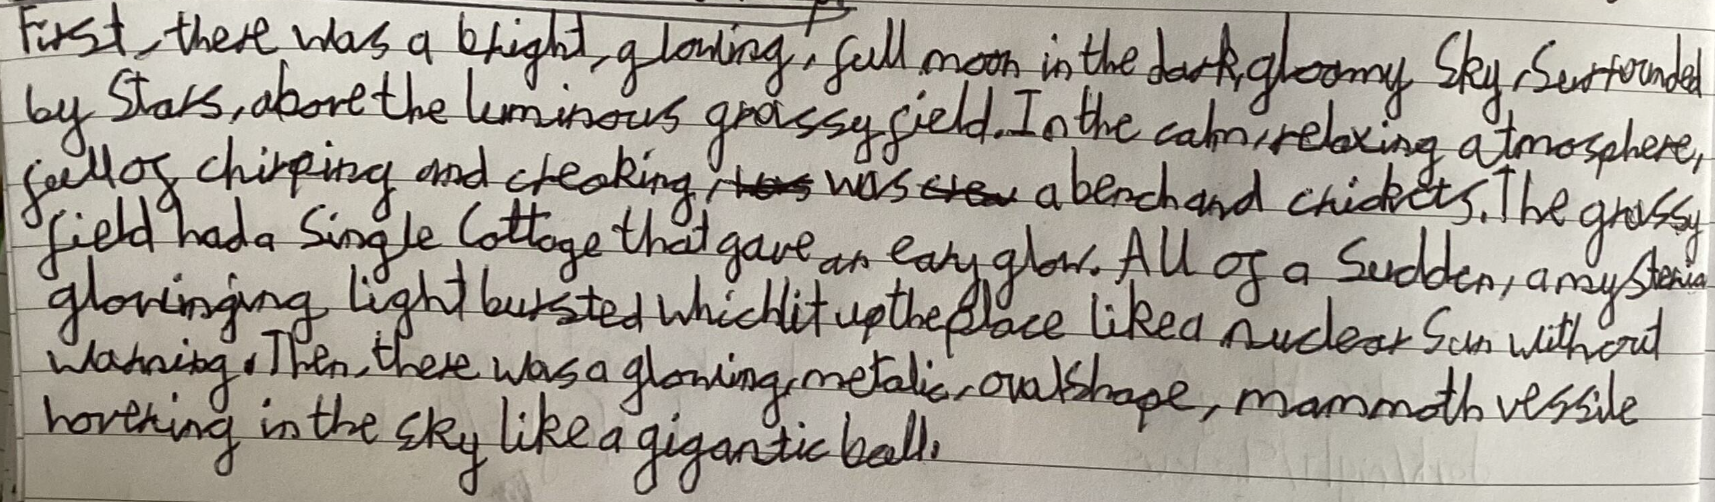 First, there was a bright, glowing, full moon in the dark, gloomy sky, surrounded
by stars, above the luminous grassy field. In the calm, relaxing atmosphere,
full of chirping and creaking, was a bench and crickets. The grassy
field had a single cottage that gave an eary glow. All of a sudden, a mysteria
glowinging light bursted which lit up the place like a nuclear sun without
warning. Then, there was a glowing, metalic, oval shape, mammoth vessile
hovering in the sky like a gigantic ball.